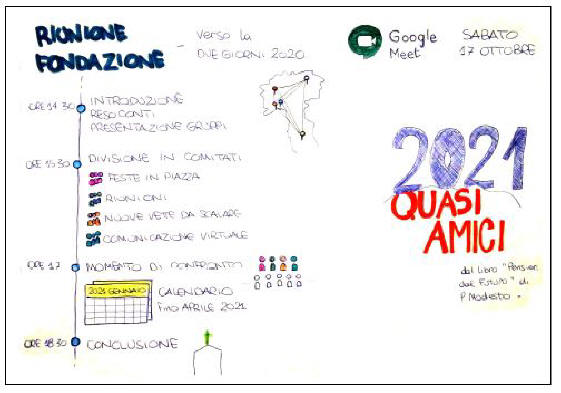 RIUNIONE
FONDAZIONE
- verso la
DUE GIORNI 2020
Google
Meet
SABATO
17 OTTOBRE
ORE 14 30
INTRODUZIONE
RESOCONTI
PRESENTAZIONE GRUPPI
ORE 15 30
DIVISIONE IN COMITATI
FESTE IN PIAZZA
RIUNIONI
NUOVE VETTE DA SCALARE
COMUNICAZIONE VIRTUALE
ORE 17
MOMENTO DI CONFRONTO
2021 GENNAIO
CALENDARIO
fino APRILE 2021
ORE 18 30
CONCLUSIONE
2021
QUASI
AMICI
dal libro "Pensieri
dal Futuro" di
P. Modesto.